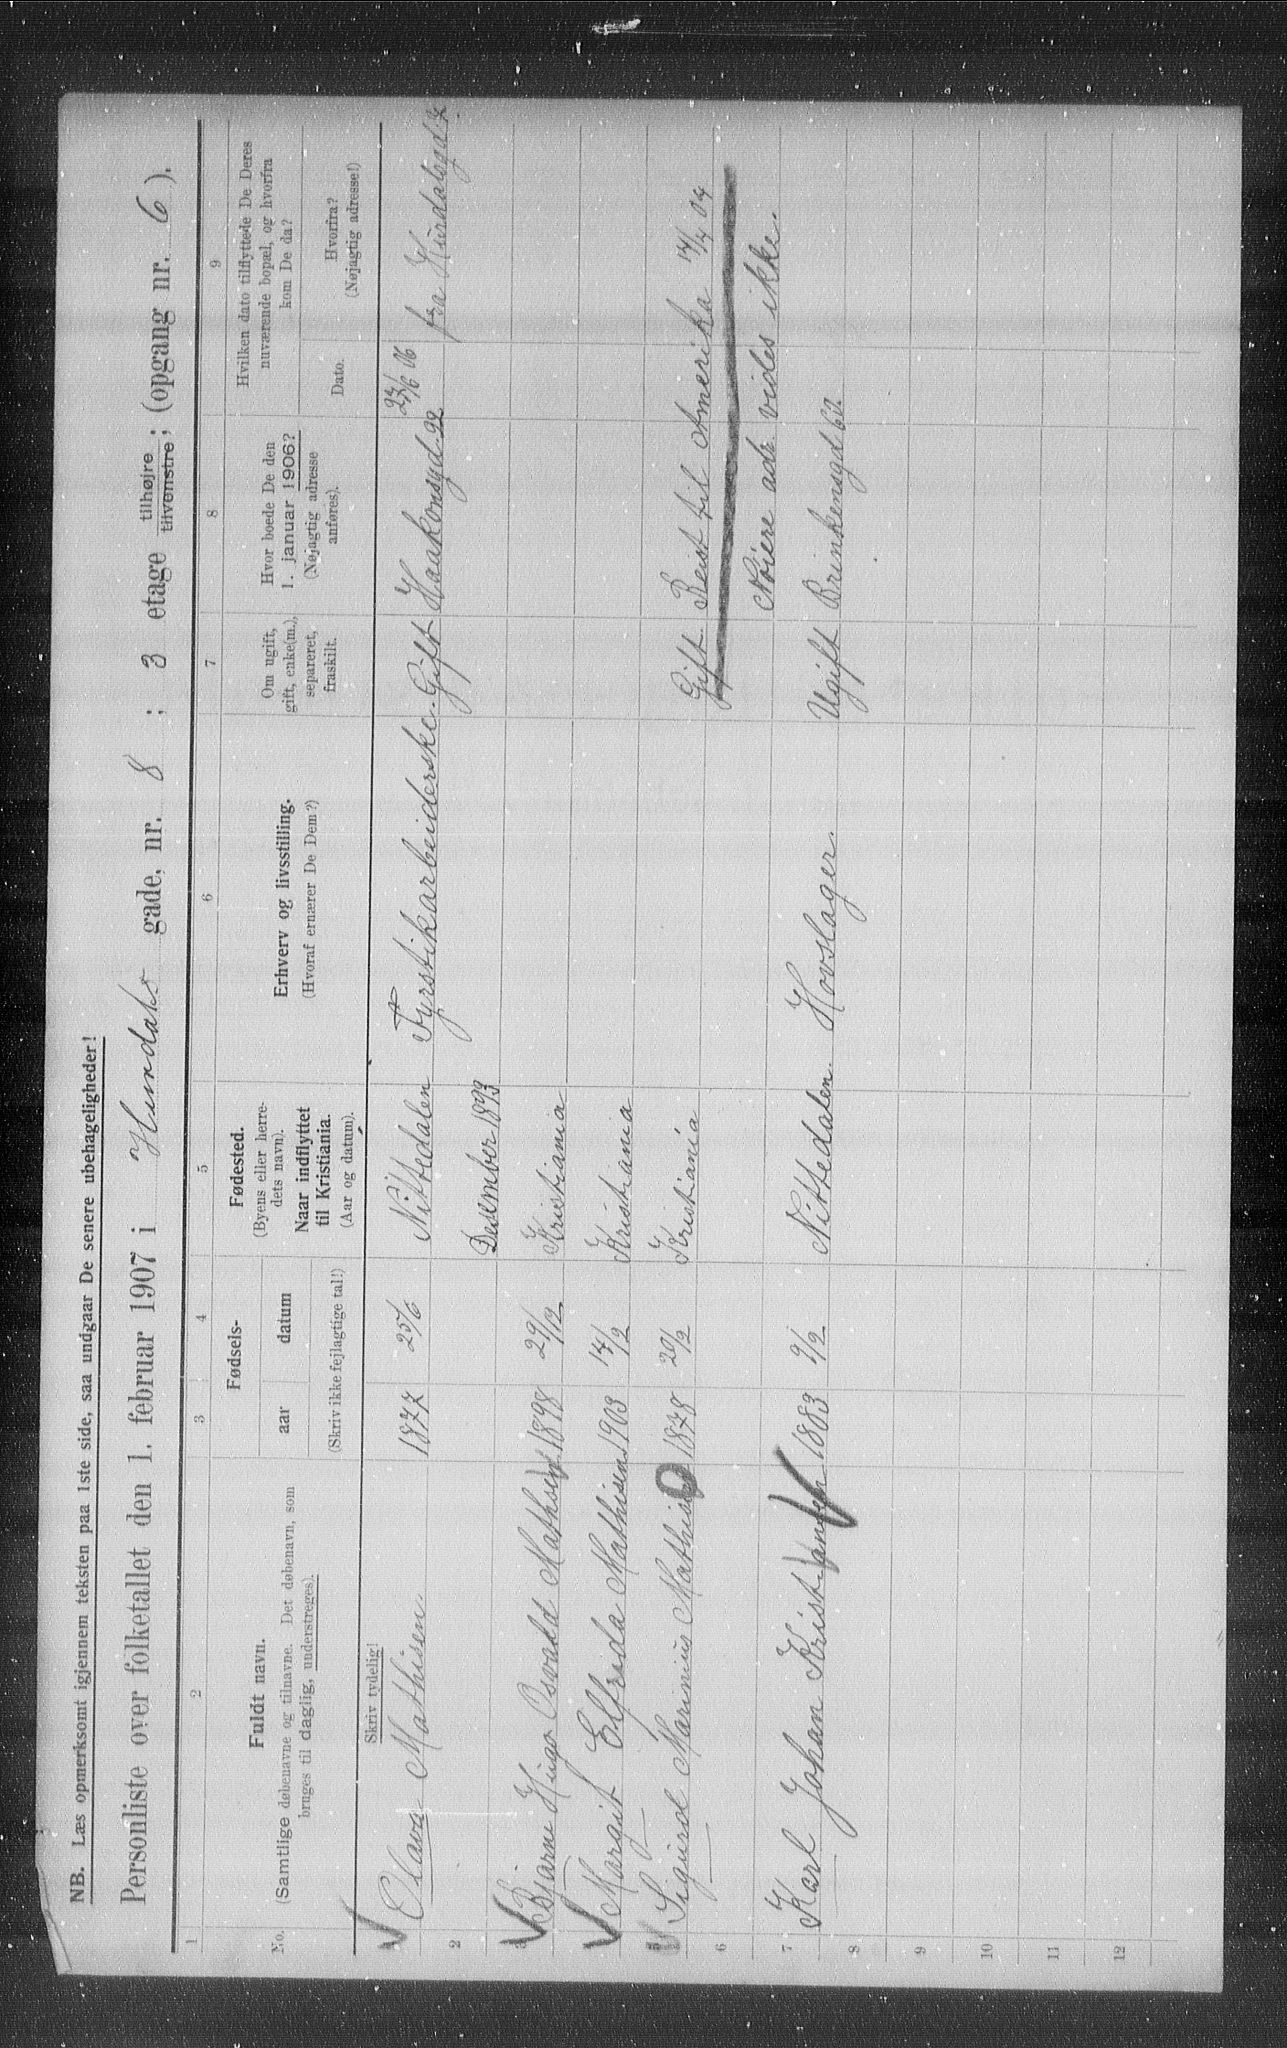 NB. Læs opmerksomt igjennem teksten paa 1ste side, saa undgaar De senere ubehageligheder!
Personliste over folketallet den 1. februar 1907 i Hurdals gade, nr. 8 ; 3 etage tilhøjre tilvenstre ; (opgang nr. 6 ).
1 2 3 4 5 6 7 8 9
No.
Fuldt navn.
(Samtlige døbenavne og tilnavne. Det døbenavn, som
bruges til daglig, understreges).
Fødsels-
aar datum
(Skriv ikke fejlagtige tal!)
Fødested.
(Byens eller herre-
dets navn).
Naar indflyttet
til Kristiania.
(Aar og datum).
Erhverv og livsstilling.
(Hvoraf ernærer De Dem?)
Om ugift,
gift, enke(m.),
separeret,
fraskilt.
Hvor boede De den
1. januar 1906?
(Nøjagtig adresse
anføres).
Hvilken dato tilflyttede De Deres
nuværende bopæl, og hvorfra
kom De da?
Dato.
Hvorfra?
(Nøjagtig adresse!)
Skriv tydelig!
Olava Mathisen 1877 25/6 Nittedalen Fyrstikarbeiderske. Gift Haakonsgd 22 23/6 06 fra Hurdalsgd 7
2 Desember 1893
3 Bjarne Hugo Osvald Mathisen 1898 29/12 Kristiania
Margit Elfrida Mathisen 1903 14/2 Kristiania
Sigurd Marinius Mathisen 1878 20/2 Kristiania Gift. Reist til Amerika 14/4 04
6 Nöiere adr. vides ikke.
7 Karl Johan Kristiansen 1883 9/2 Nittedalen. Hovslager. Ugift Brinkensgd 62
8
9
10
11
12